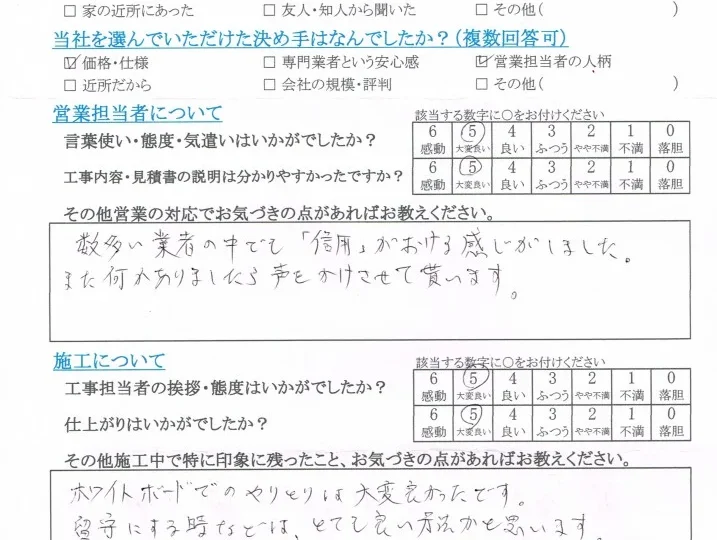 □ 家の近所にあった □ 友人・知人から聞いた □ その他( )
当社を選んでいただけた決め手はなんでしたか？(複数回答可)
☑ 価格・仕様 □ 専門業者という安心感 ☑ 営業担当者の人柄
□ 近所だから □ 会社の規模・評判 □ その他( )
営業担当者について 該当する数字に○をお付けください
言葉使い・態度・気遣いはいかがでしたか？ 6 5 4 3 2 1 0
感動 大変良い 良い ふつう やや不満 不満 落胆
工事内容・見積書の説明は分かりやすかったですか？ 6 5 4 3 2 1 0
感動 大変良い 良い ふつう やや不満 不満 落胆
その他営業の対応でお気づきの点があればお教えください。
数多い業者の中でも「信用」がおける感じがしました。
また何かありましたら声をかけさせて貰います。
施工について 該当する数字に○をお付けください
工事担当者の挨拶・態度はいかがでしたか？ 6 5 4 3 2 1 0
感動 大変良い 良い ふつう やや不満 不満 落胆
仕上がりはいかがでしたか？ 6 5 4 3 2 1 0
感動 大変良い 良い ふつう やや不満 不満 落胆
その他施工中で特に印象に残ったこと、お気づきの点があればお教えください。
ホワイトボードでのやりとりは大変良かったです。
留守にする時などは、とても良い方法かと思います。